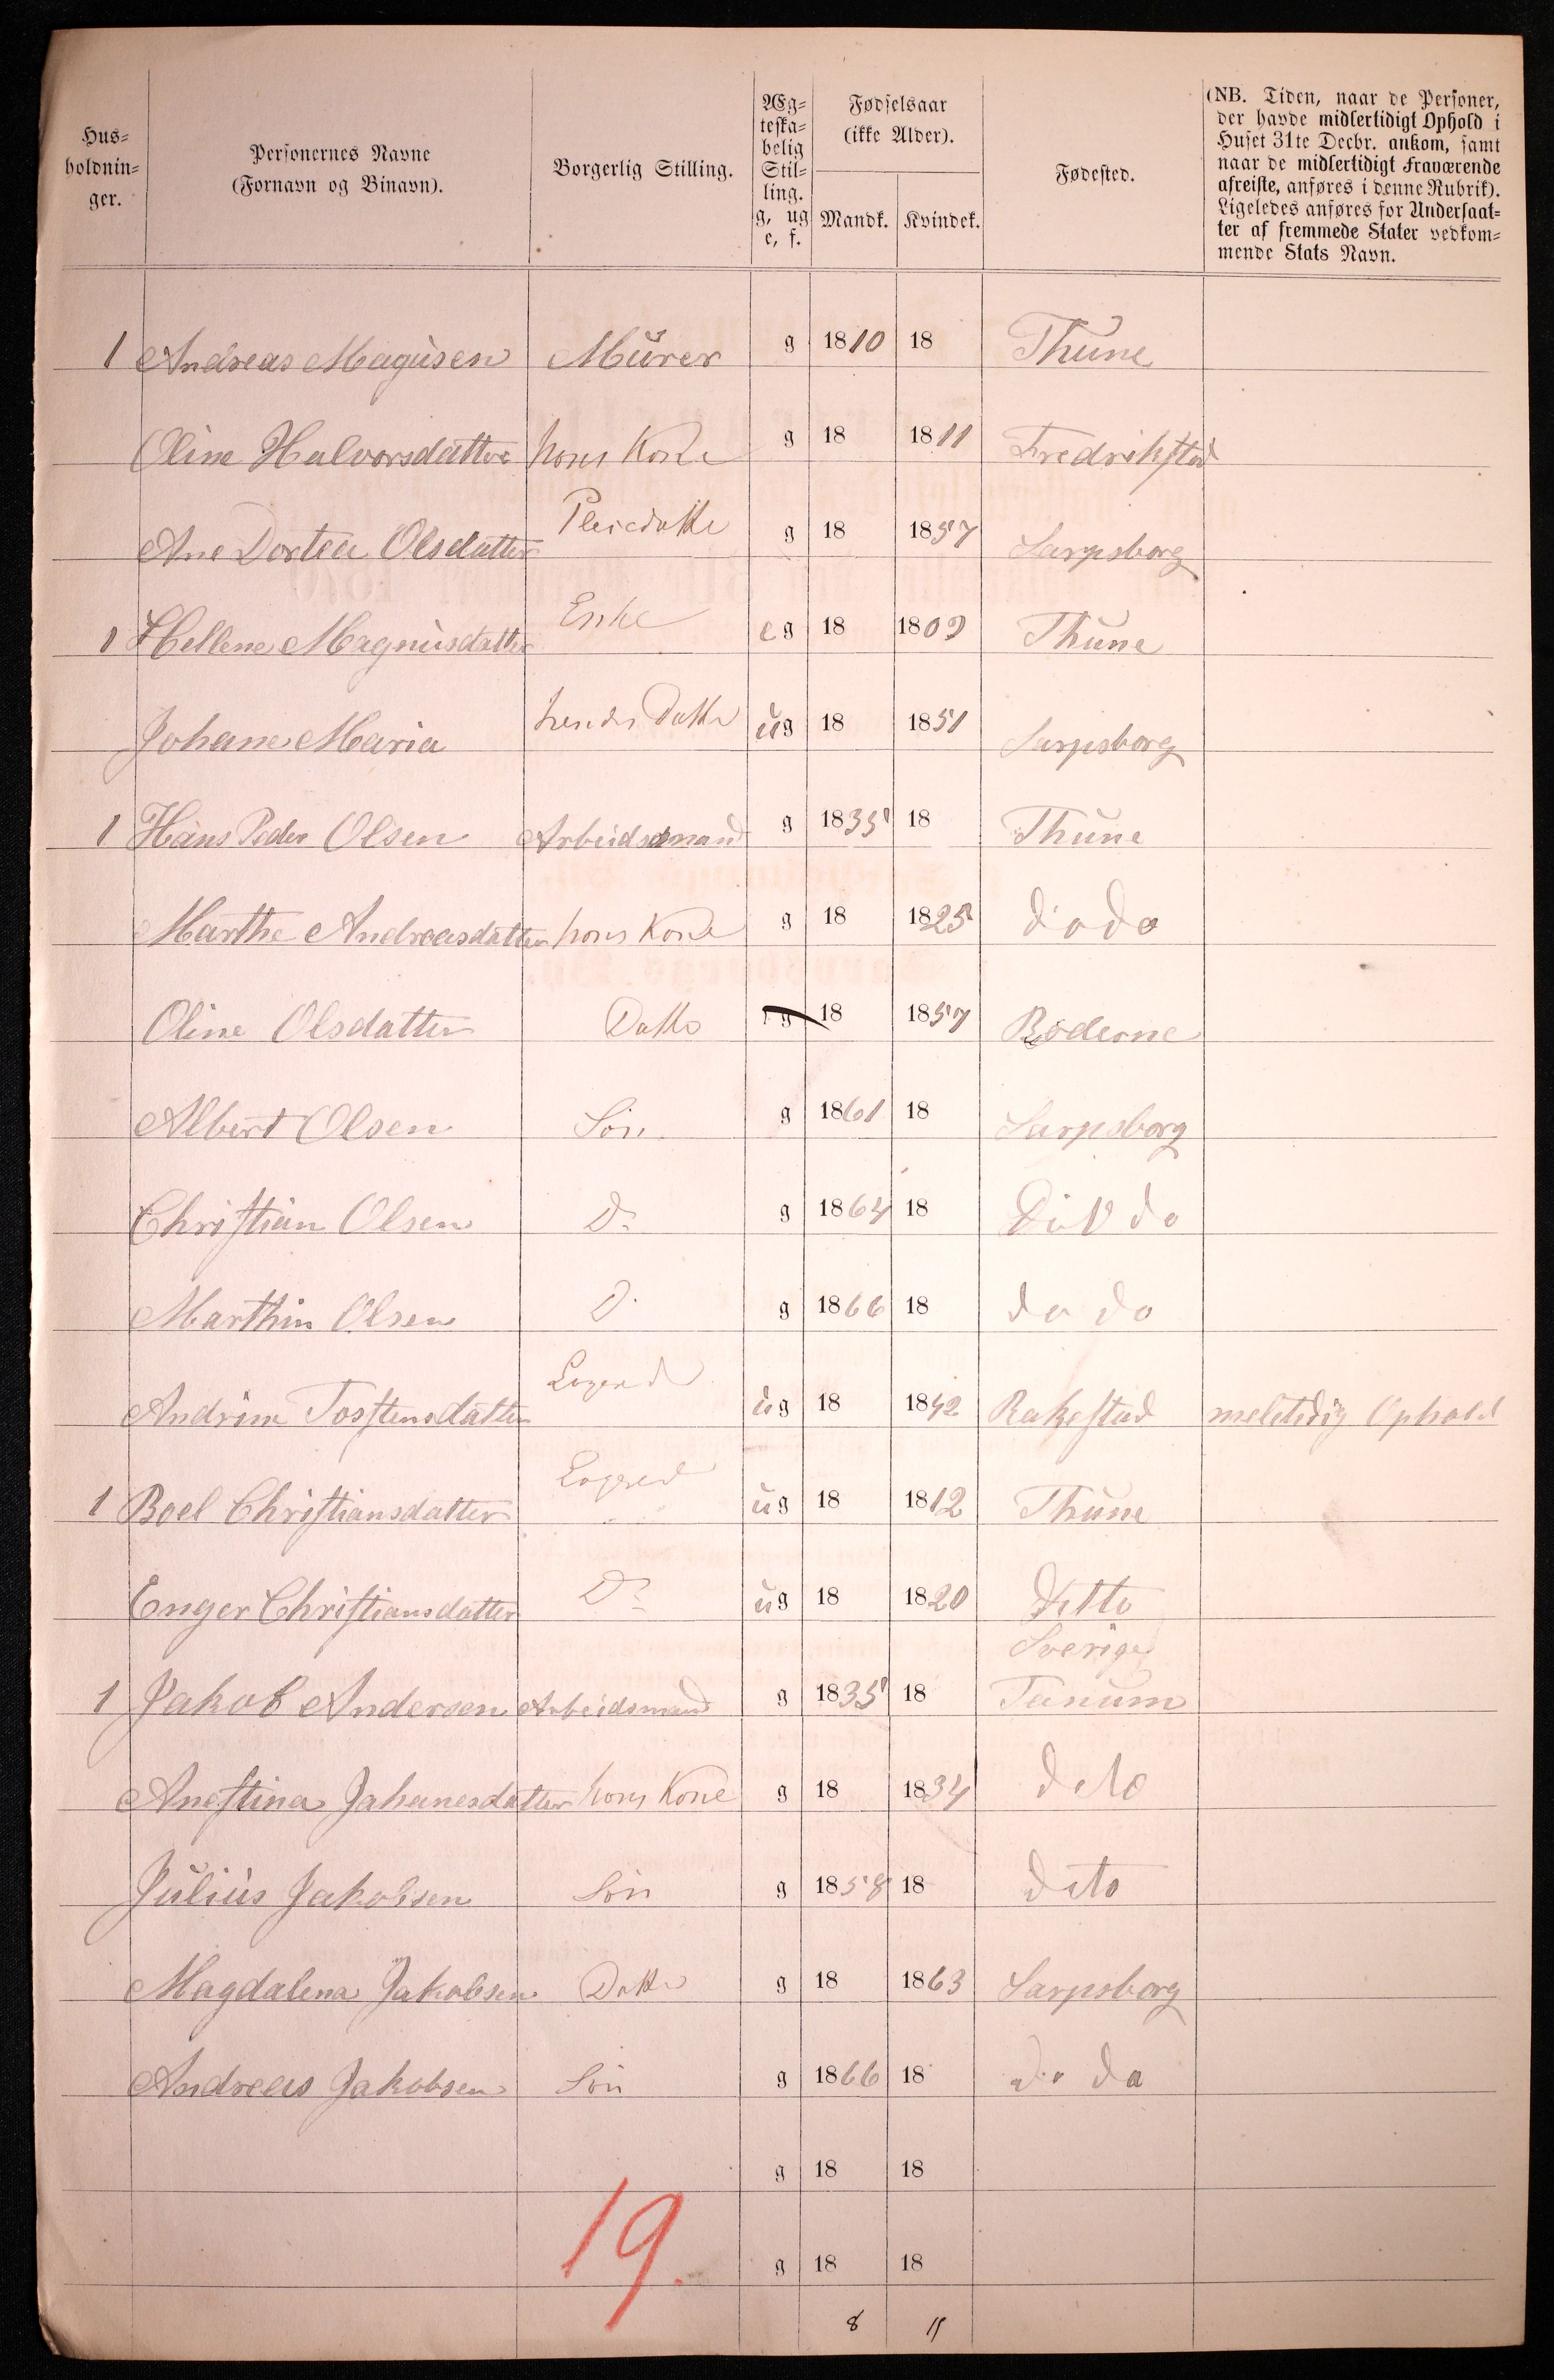 Hus-
holdnin-
ger.
Personernes Navne
(Fornavn og Binavn).
Borgerlig Stilling.
Æg-
teska-
belig
Stil-
ling.
g, ug
e, f.
Fødselsaar
(ikke Alder).
Mandk. Kvindek.
Fødested.
(NB. Tiden, naar de Personer,
der havde midlertidigt Ophold i
Huset 31te Decbr. ankom, samt
naar de midlertidigt Fraværende
afreiste, anføres i denne Rubrik).
Ligeledes anføres for Undersaat-
ter af fremmede Stater vedkom-
mende Stats Navn.
1 Andreas Magusen Murer g 1810 18 Thune
Oline Halvorsdatter hans Kone g 18 1811 Fredrikstad
Ane Dortea Olsdatter Pleiedatte g 18 1857 Sarpsborg
1 Hellene Magnusdatter Enke eg 18 1809 Thune
Johane Maria hendes Datte ug 18 1851 Sarpsborg
1 Hans Peder Olsen Arbeidsmand g 1835 18 Thune
Marthe Andreasdatter hans Kone g 18 1825 do do
Oline Olsdatter Datte g 18 1857 Røderne
Albert Olsen Søn g 1861 18 Sarpsborg
Christian Olsen Do g 1864 18 do
Marthin Olsen D. g 1866 18 do do
Andrine Tostensdatter Logerend ug 18 1842 Rakestad meletidig Ophold
1 Boel Christiansdatter Logered ug 18 1812 Thune
Enger Christiansdatter Do ug 18 1820 Ditto
Sverige
1 Jakob Andersen Arbeidsmand g 1835 18 Tanum
Anestina Jahanesdatter hans Kone g 18 1834 deto
Julius Jakobsen Søn g 1858 18 dito
Magdalena Jakobsen Datte g 18 1863 Sarpsborg
Andreas Jakobsen Søn g 1866 18 do do
g 18 18
19.
g 18 18
8 11